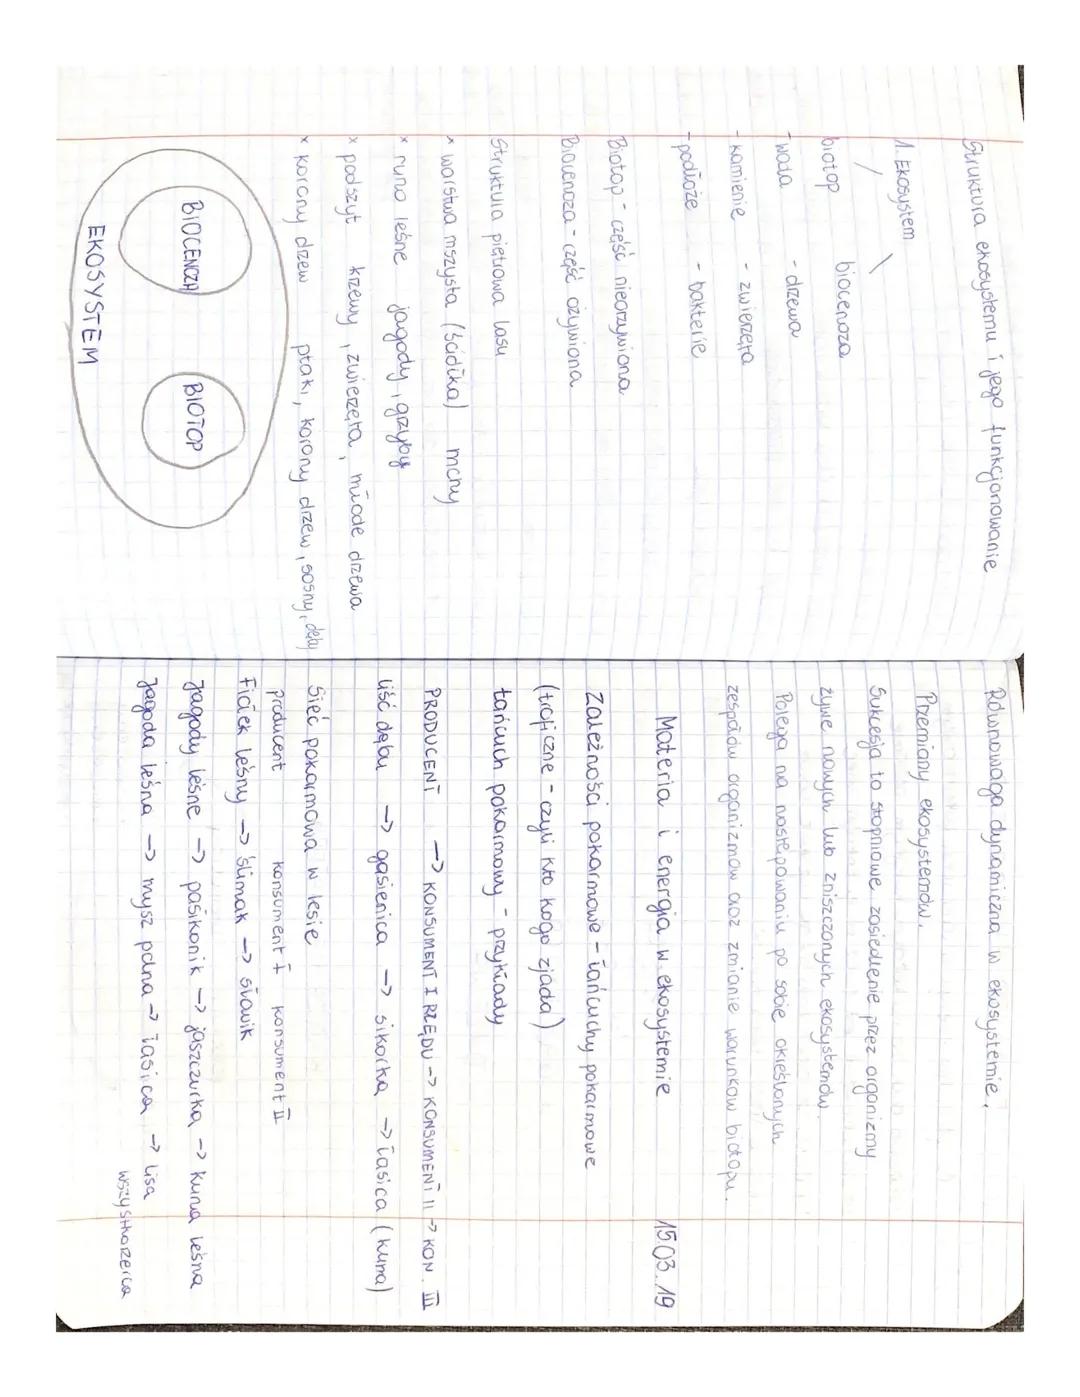 Struktura ekosystemu i jego funkcjonowanie
1. Ekosystem
biotop biocenoza
- woda - drzewa
- kamienie - zwierzęta
- podłoże - bakterie
Biotop - część nieożywiona
Biocenoza - część ożywiona
Struktura piętrowa lasu
x warstwa mszysta (ściółka) mchy
x runo leśne jagody, grzyby
x podszyt krzewy, zwierzęta, młode drzewa
x korony drzew ptaki, korony drzew, sosny, dęby
BIOCENOZA BIOTOP
EKOSYSTEM
Równowaga dynamiczna w ekosystemie.
Przemiany ekosystemów.
Sukcesja to stopniowe zasiedlenie przez organizmy
żywe nowych lub zniszczonych ekosystemów.
Polega na następowaniu po sobie określonych
zespołów organizmów oraz zmianie warunków biotopu.
15.03.19
Materia i energia w ekosystemie
Zależności pokarmowe - łańcuchy pokarmowe
(troficzne - czyli kto kogo zjada)
łańcuch pokarmowy - przykłady
PRODUCENT -> KONSUMENT I RZĘDU -> KONSUMENT II -> KON. III
liść dębu -> gąsienica -> sikorka -> łasica (kuna)
Sieć pokarmowa w lesie
producent konsument I konsument II
Fiołek leśny -> ślimak -> słowik
Jagody leśne -> pasikonik -> jaszczurka -> kuna leśna
Jagoda leśna -> mysz polna -> łasica -> lisa
wszystkożerca